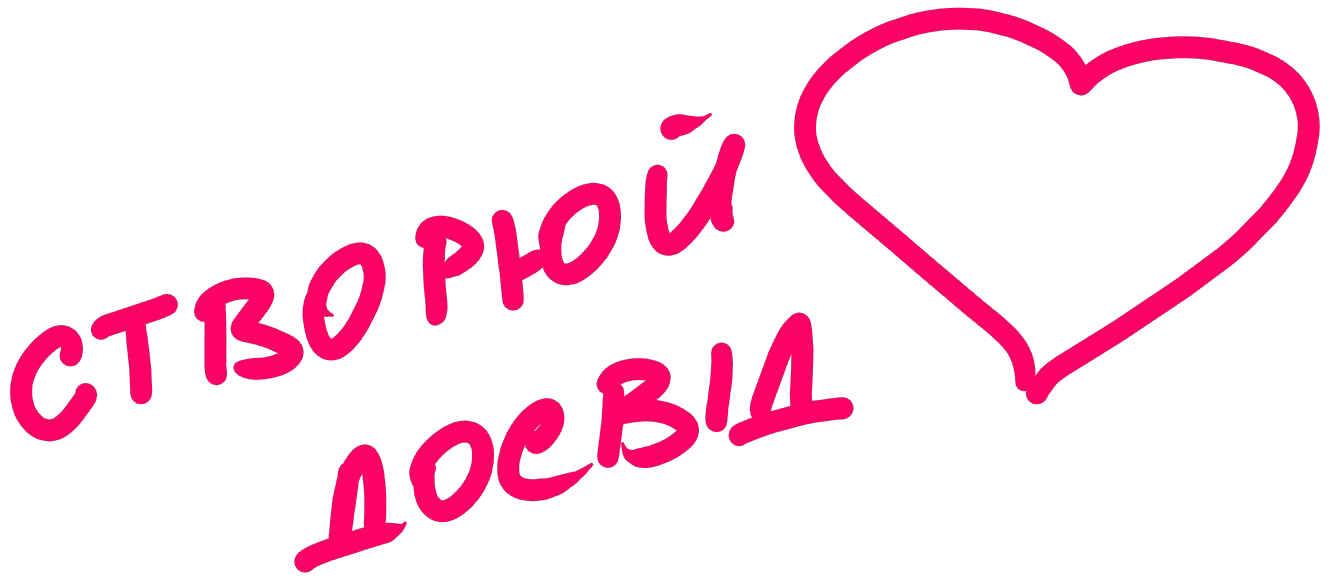 СТВОРЮЙ
ДОСВІД